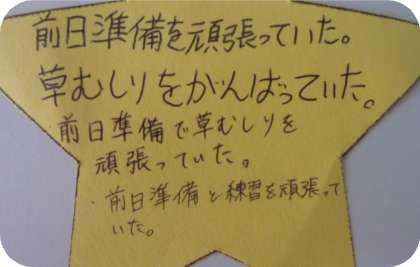 前日準備を頑張っていた。
草むしりをがんばっていた。
前日準備で草むしりを
頑張っていた。
・前日準備と練習を頑張って
いた。